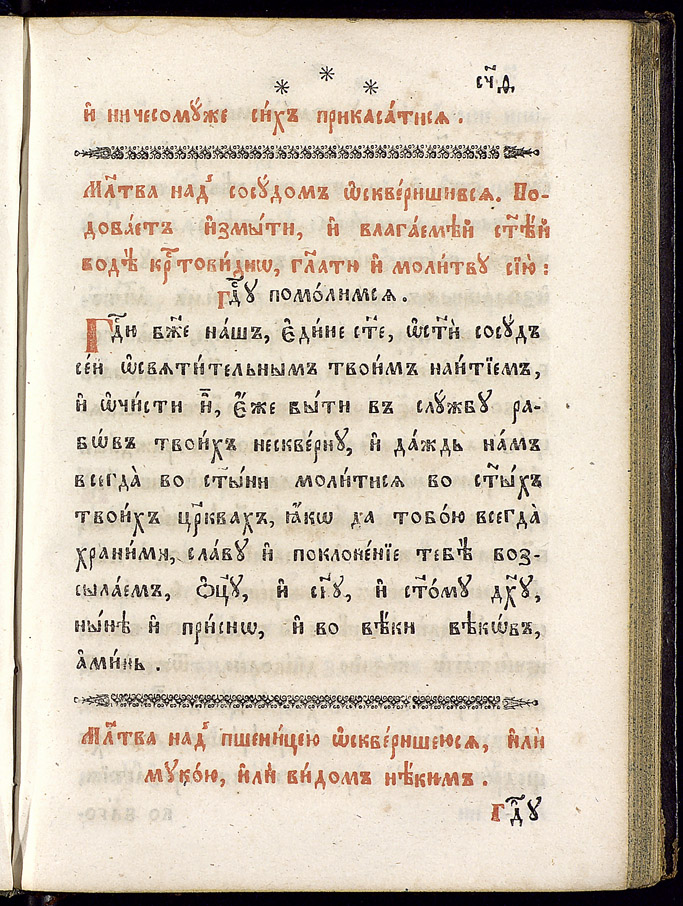 сч҃д
и҆ ничесомꙋ́же си́хъ прикаса́тисѧ.
Мл҃тва над̾ сосꙋ́домъ ѡ҆скве́рншимсѧ. По-
доба́етъ и҆змы́ти, и҆ влага́емѣй ст҃ѣ́й
водѣ̀ крⷭ҇тови́днѡ, гл҃ати и҆ моли́твꙋ сїю̀:
Гдⷭ҇ꙋ помо́лимсѧ.
Гдⷭ҇и бж҃е на́шъ, є҆ди́не ст҃е, ѡ҆ст҃ѝ сосꙋ́дъ
се́й ѡ҆свѧти́тельнымъ твои́мъ наи́тїемъ,
и҆ ѡ҆чи́сти и҆̀, є҆́же бы́ти въ слꙋ́жбꙋ ра-
бѡ́въ твои́хъ нескве́рнꙋ, и҆ да́ждь на́мъ
всегда̀ во ст҃ы́ни моли́тисѧ во ст҃ы́хъ
твои́хъ цр҃квахъ, ꙗ҆́кѡ да тобо́ю всегда̀
храни́ми, сла́вꙋ и҆ поклоне́нїе тебѣ̀ воз-
сыла́емъ, ѻ҆ц҃ꙋ̀, и҆ сн҃ꙋ, и҆ ст҃о́мꙋ дх҃ꙋ,
ны́нѣ и҆ при́снѡ, и҆ во вѣ́ки вѣкѡ́въ,
а҆ми́нь.
Мл҃тва над̾ пшени́цею ѡ҆скве́ршеюсѧ, и҆лѝ
мꙋко́ю, и҆лѝ ви́домъ нѣ́кимъ.
Гдⷭ҇ꙋ